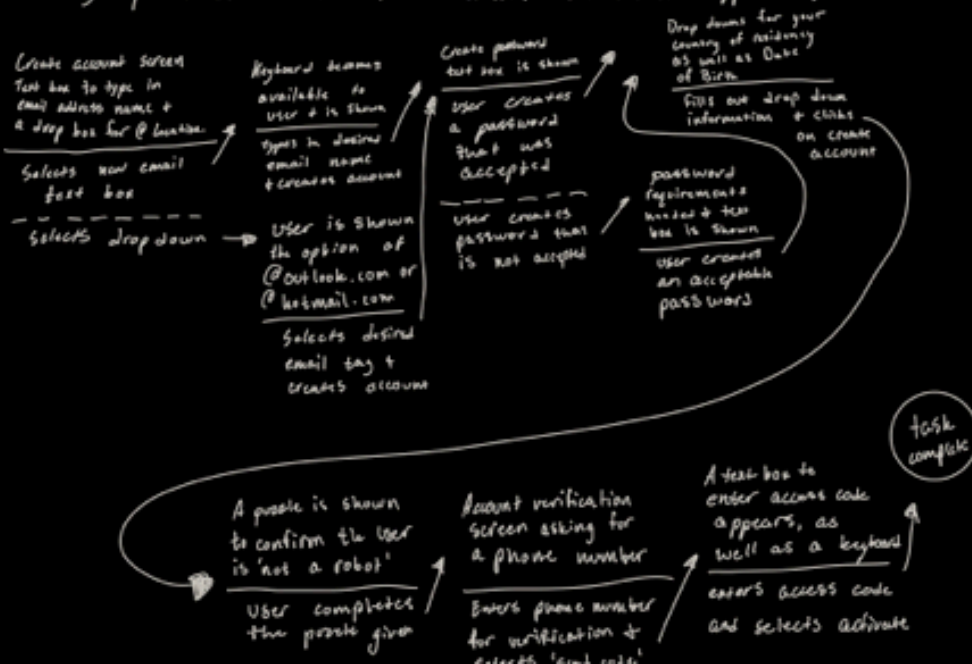 Create account screen
Text box to type in
email address name +
a drop box for @ location
Selects new email
text box
Selects drop down
Keyboard becomes
available to
user + is shown
types in desired
email name
+ creates account
user is shown
the option of
@outlook.com or
@hotmail.com
Selects desired
email tag +
creates account
Create password
text box is shown
user creates
a password
that was
accepted
user creates
password that
is not accepted
password
requirements
needed + text
box is shown
user creates
an acceptable
password
Drop downs for your
country of residency
as well as Date
of Birth
Fills out drop down
information + clicks
on create
account
A puzzle is shown
to confirm the user
is 'not a robot'
User completes
the puzzle given
Account verification
screen asking for
a phone number
Enters phone number
for verification +
selects 'send code'
A text box to
enter access code
appears, as
well as a keyboard
enters access code
and selects activate
task
complete